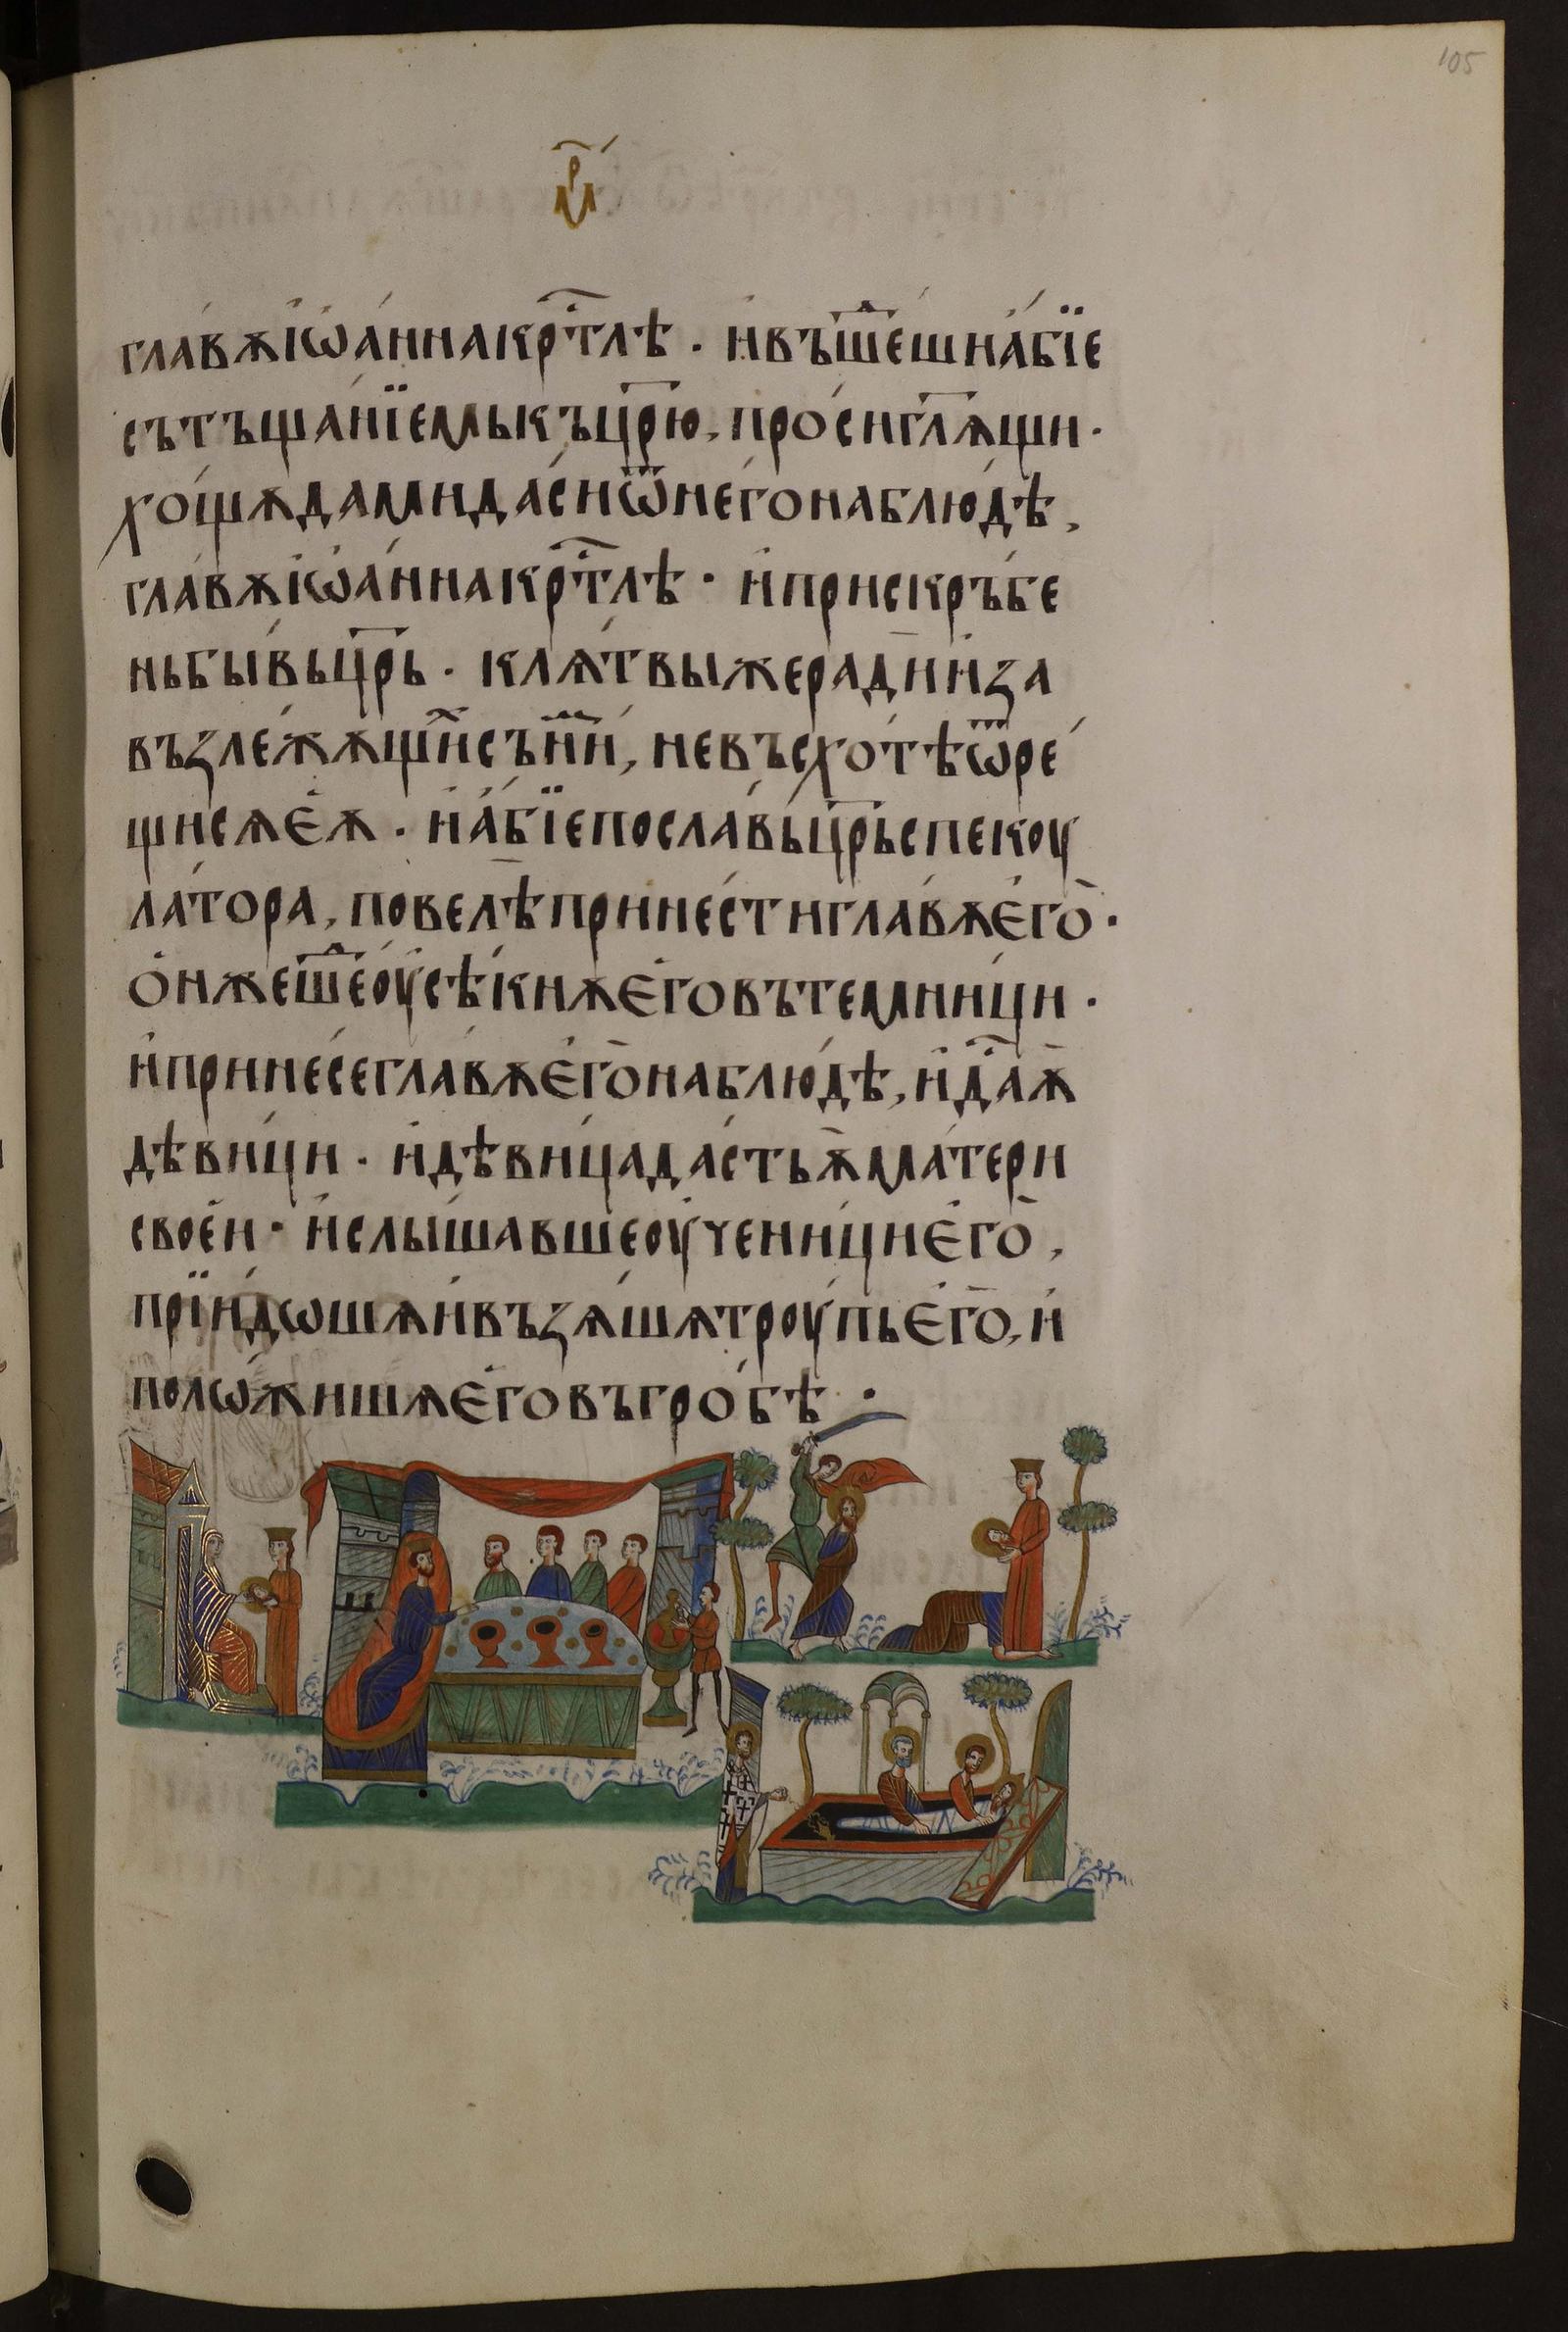 105
мр҃
гла́вѫ і҆ѡа́нна кр҃тлѣ . и҆ въше́ши а҆́бїе
съ тъща́нїемь къ цр҃ю, про́си гл҃ѧщи .
хо́щѫ да ми да́си ѿ него на блю́дѣ,
гла́вѫ і҆ѡа́нна кр҃тлѣ · и҆ прискръ́бе
нь бы́вь цр҃ь . клѧ́твы же ради҆ и҆ за
възле́жѧщи съ ни́и, не въсхо́тѣ ѿре́
щи сѧ е҆ѧ . и҆ а҆́бїе посла́вь цр҃ь спекоу
ла́тора, повелѣ прине́сти гла́вѫ е҆го .
о҆н же ше́ оусѣ́кнѫ е҆го въ темни́ци .
и҆ прине́се гла́вѫ е҆го на блю́дѣ, и҆ да́ ѫ
дѣви́ци . и҆ дѣви́ца да́сть ѫ ма́тери
свое́и · и҆ слы́шавше оучени́ци е҆го,
прїидѡшѧ и҆ възѧ́шѧ троу́пь е҆го, и҆
полѡ́жишѧ е҆го въ гро́бѣ ·